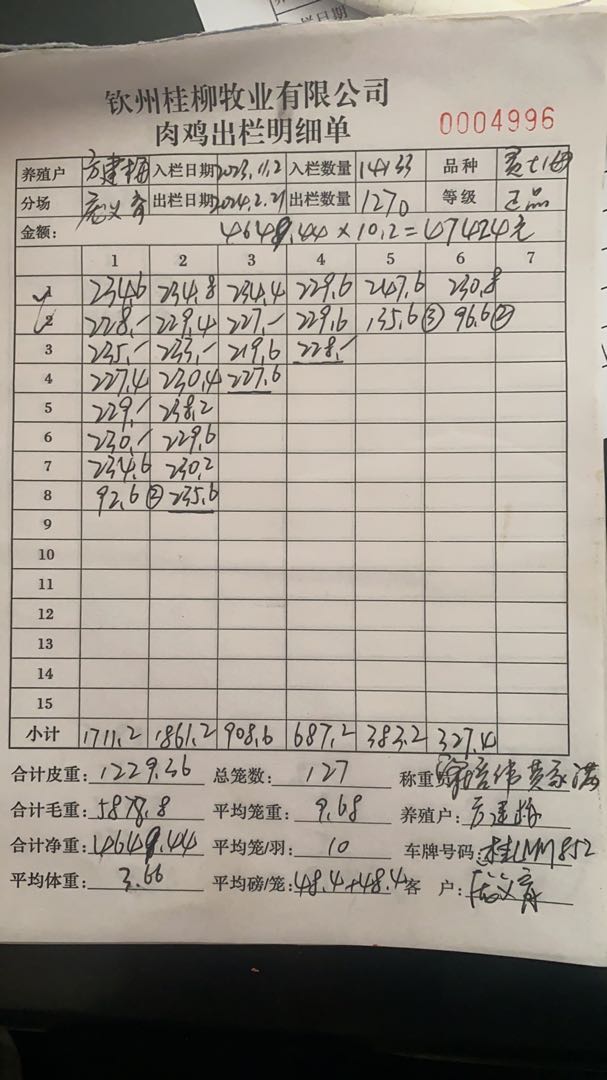 出栏日期
钦州桂柳牧业有限公司
肉鸡出栏明细单
0004996
养殖户 方建梅 入栏日期 2023.11.2 入栏数量 14133 品种
分场 庞义育 出栏日期 2024.2.21 出栏数量 1270 等级 正品
金额: 4649.44×10.2=47424元
1 2 3 4 5 6 7
1 234.6 234.8 234.4 229.6 247.6 230.8
2 228.- 229.4 227.- 229.6 135.6③ 96.6②
3 235.- 233.- 219.6 228.-
4 227.4 230.4 227.6
5 229.- 238.2
6 230.- 229.6
7 234.6 230.2
8 92.6② 235.6
9
10
11
12
13
14
15
小计 1711.2 1861.2 908.6 687.2 383.2 327.4
合计皮重: 1229.36 总笼数: 127 称重
合计毛重: 5878.8 平均笼重: 9.68 养殖户: 方建梅
合计净重: 4649.44 平均笼/羽: 10 车牌号码:
平均体重: 3.66 平均磅/笼: 48.4+48.4 客户: 庞义育